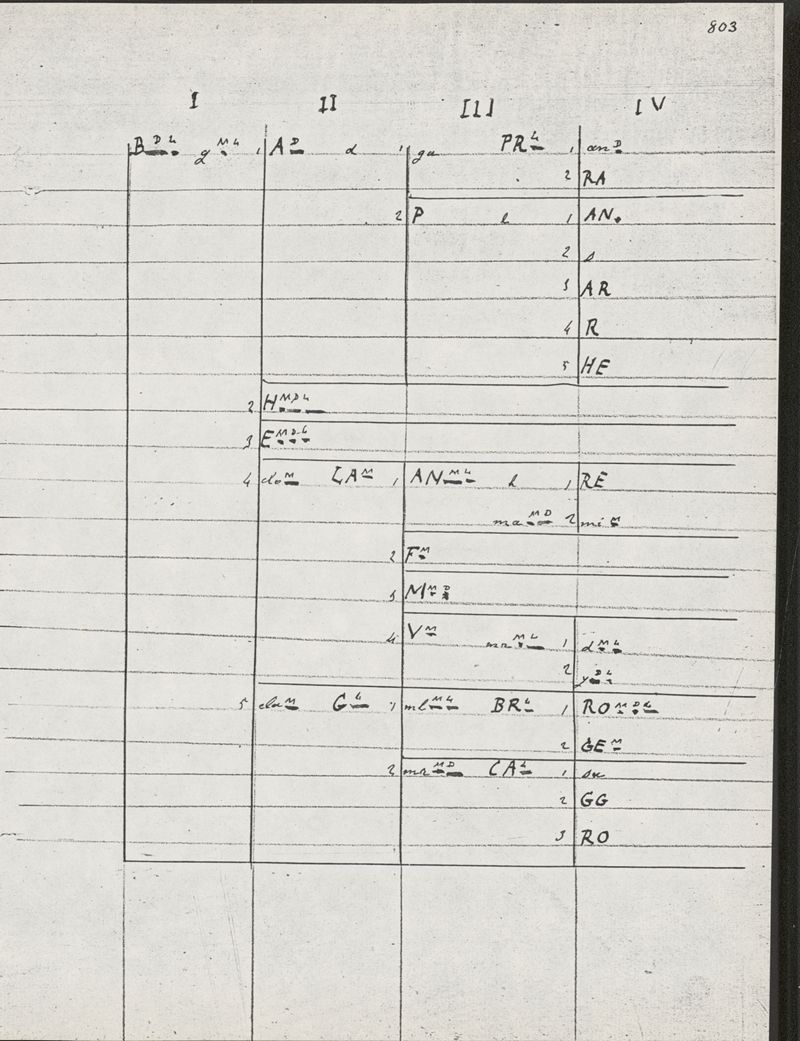 803
I II III IV
B D L g M L 1 A D d 1 ga PR L 1 an D
2 RA
2 P l 1 AN.
2 s
3 AR
4 R
5 HE
2 H M D L
3 E M D L
4 do M LA M 1 AN M L l 1 RE
ma M D 2 mi M
2 F M
3 M M D
4 V M mr M L 1 d M L
2 y D L
5 da M G L 1 ml M L BR L 1 RO M D L
2 GE M
2 mr M D CA L 1 su
2 GG
3 RO